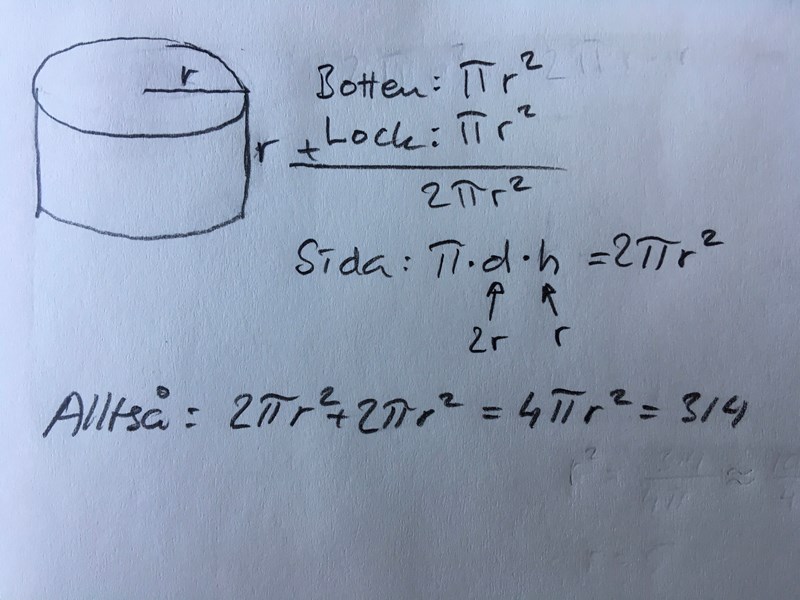 r
r
Botten: πr²
+Lock: πr²
2πr²
Sida: π·d·h =2πr²
2r r
Alltså: 2πr²+2πr² = 4πr² = 314